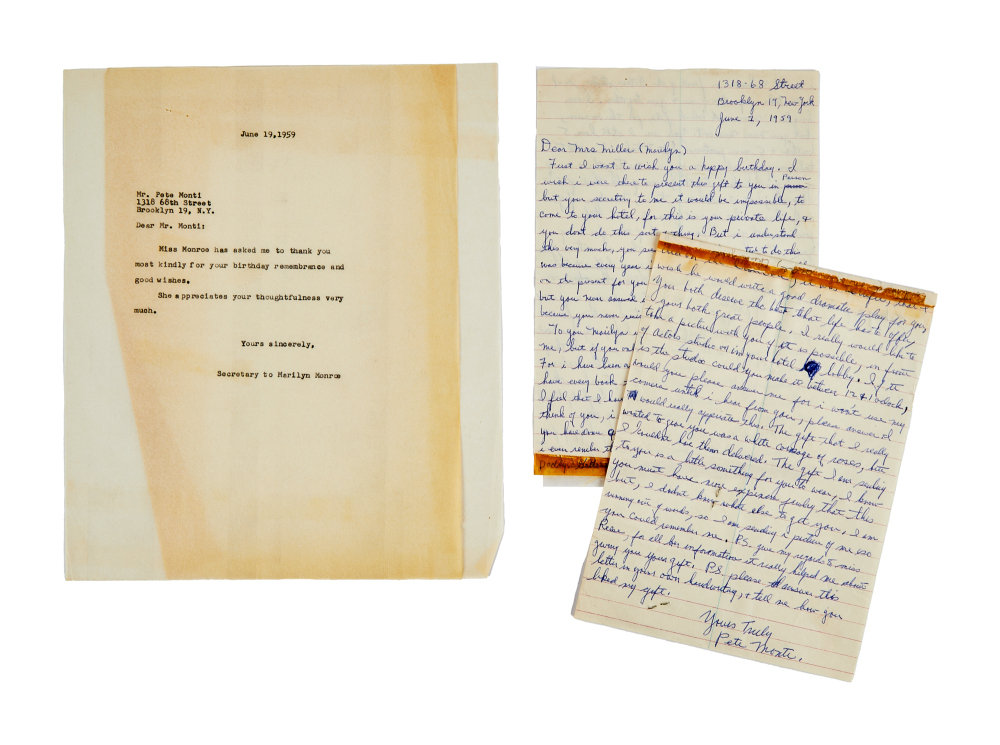 June 19,1959
Mr. Pete Monti
1318 68th Street
Brooklyn 19, N.Y.
Dear Mr. Monti:
Miss Monroe has asked me to thank you
most kindly for your birthday remembrance and
good wishes.
She appreciates your thoughtfulness very
much.
Yours sincerely,
Secretary to Marilyn Monroe
1318-68 Street
Brooklyn 19, New York
June 1, 1959
Dear Mrs Miller (Marilyn)
First I want to wish you a happy birthday. I
wish i were there to present this gift to you in Person
but your secretary to me it would be impossible, to
come to your hotel, for this is your private life, &
you dont do this sort of thing. But i understand
this very much, you see to do this
was because every year i
on the present for you
but you never answer
because you never
To you Marilyn
me, but if you
For i have been a
have every book
I feel that I have
think of you, i
you have done
i even remember
wish he would write a good dramatic play for you,
You both deserve the best that life has to offer,
your both great people. I really would like to
take a picture with you if it is possible, in front
of Actors studio or in your hotel lobby. If it
is the studio could you make it between 12 & 1 oclock,
would you please answer me for i wont use my
camera until i hear from you, please answer I
would really appreciate this. The gift that I really
wanted to give you was a white corsage of roses, but
I couldnt have them delivered. The gift I am sending
to you is a little something for you to wear, I know
you must have more expensive jewlry that this
but, I didnt know what else to get you. I am
running out of words, so I am sending a picture of me so
you could remember me. P.S. give my regards to miss
Reese, for all her information it really helped me about
giving you your gift. P.S. please answer this
letter in your own handwriting, & tell me how you
liked my gift.
Yours Truly
Pete Monti.